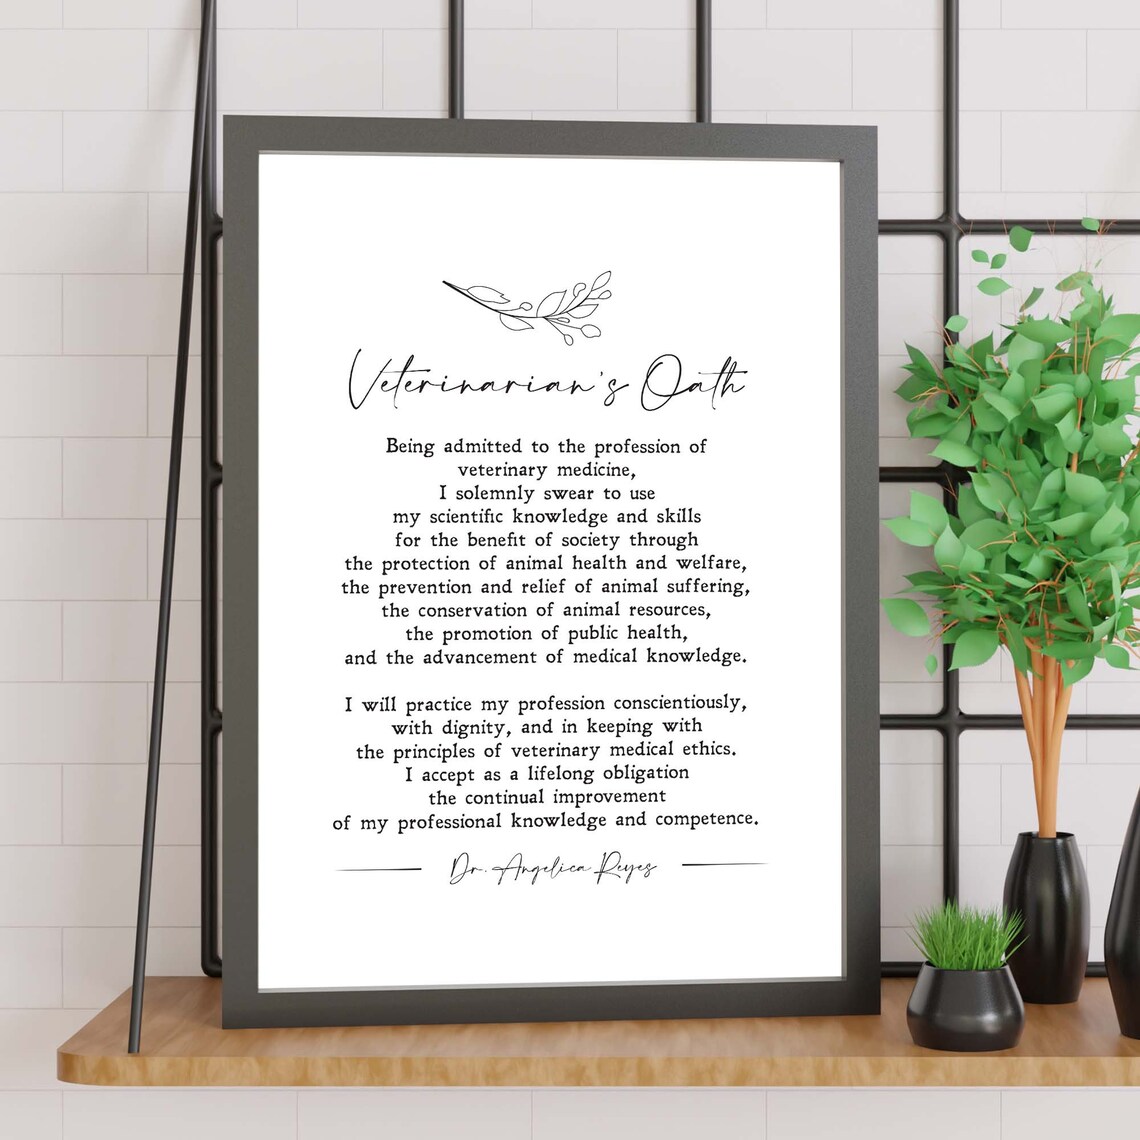 Veterinarian's Oath
Being admitted to the profession of
veterinary medicine,
I solemnly swear to use
my scientific knowledge and skills
for the benefit of society through
the protection of animal health and welfare,
the prevention and relief of animal suffering,
the conservation of animal resources,
the promotion of public health,
and the advancement of medical knowledge.
I will practice my profession conscientiously,
with dignity, and in keeping with
the principles of veterinary medical ethics.
I accept as a lifelong obligation
the continual improvement
of my professional knowledge and competence.
Dr. Angelica Reyes